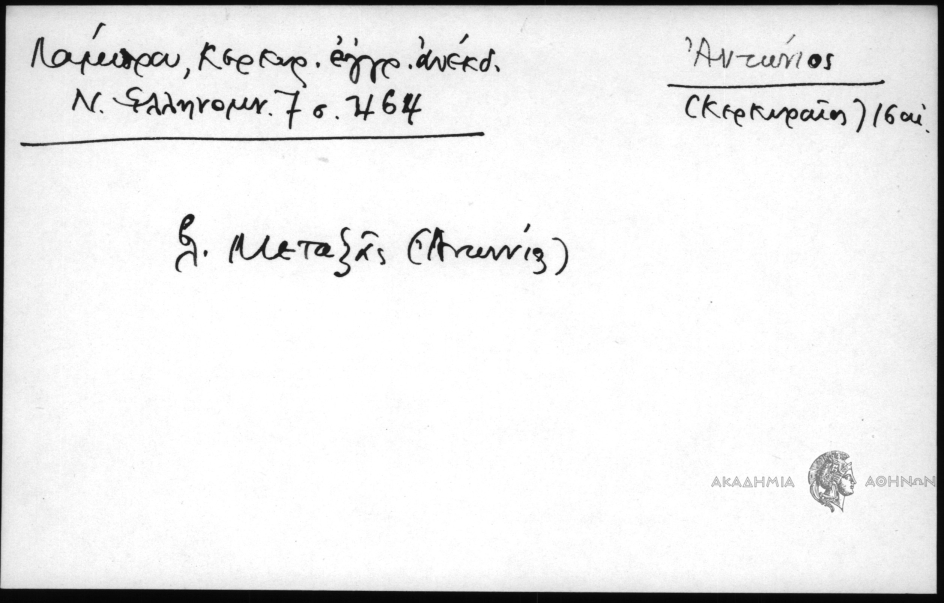 Λάμπρου, Κερκυρ. ἔγγρ. ἀνέκδ.
Ν. Ἑλληνομν. 7 σ. 464
Ἀντώνιος
(Κερκυραῖος) 16 αἰ.
βλ. Μεταξᾶς (Ἀντώνιος)
ΑΚΑΔΗΜΙΑ ΑΘΗΝΩΝ